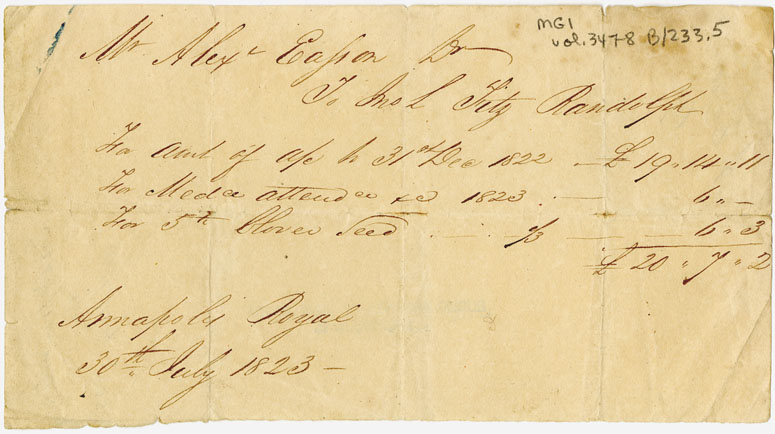 MG1
vol. 3478 B/233.5
Mr Alexr Easson Dr
To Jno L Fitz Randolph
For amt of a/c to 31st Dec 1822 - £ 19 " 14 " 11
For Medce attendce &c 1823 . — 6 " –
For 5 lb Clover Seed . — . — 1/3 — 6 " 3
£ 20 " 7 " 2
Annapolis Royal
30th July 1823 –